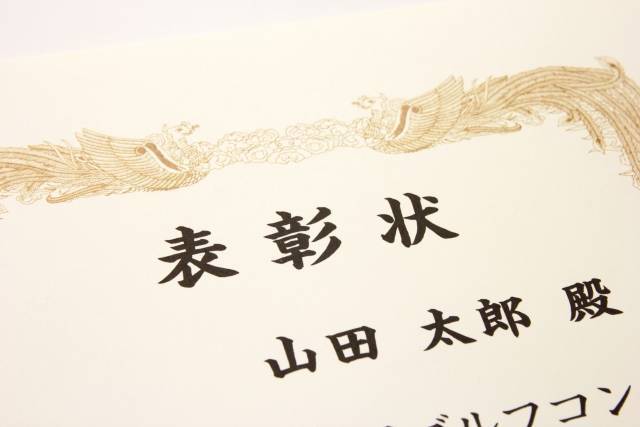 表彰状
山田 太郎 殿
ゴルフコン